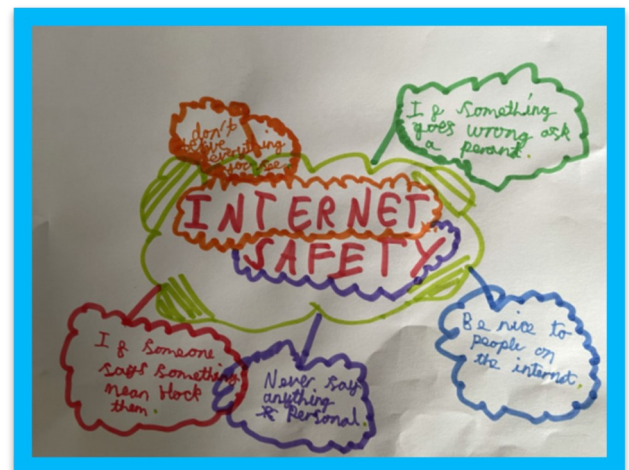 don't
belive
everything
you see
If something
goes wrong ask
a perant.
INTERNET
SAFETY
If someone
says something
mean block
them.
Never say
anything
& personal.
Be nice to
people on
the internet.